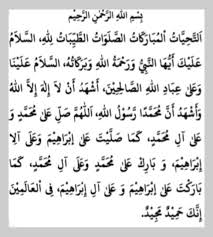 بِسْمِ اللهِ الرَّحْمٰنِ الرَّحِيْمِ
اَلتَّحِيَّاتُ الْمُبَارَكَاتُ الصَّلَوَاتُ الطَّيِّبَاتُ لِلّٰهِ، السَّلَامُ
عَلَيْكَ أَيُّهَا النَّبِيُّ وَرَحْمَةُ اللهِ وَبَرَكَاتُهُ، السَّلَامُ عَلَيْنَا
وَعَلَى عِبَادِ اللهِ الصَّالِحِيْنَ، أَشْهَدُ أَنْ لَا إِلٰهَ إِلَّا اللهُ
وَأَشْهَدُ أَنَّ مُحَمَّدًا رَّسُوْلُ اللهِ، اَللّٰهُمَّ صَلِّ عَلَى مُحَمَّدٍ وَ
عَلَى آلِ مُحَمَّدٍ، كَمَا صَلَّيْتَ عَلَى إِبْرَاهِيْمَ وَعَلَى آلِ
إِبْرَاهِيْمَ، وَ بَارِكْ عَلَى مُحَمَّدٍ وَعَلَى آلِ مُحَمَّدٍ، كَمَا
بَارَكْتَ عَلَى إِبْرَاهِيْمَ وَ عَلَى آلِ إِبْرَاهِيْمَ، فِى الْعَالَمِيْنَ
إِنَّكَ حَمِيْدٌ مَّجِيْدٌ.